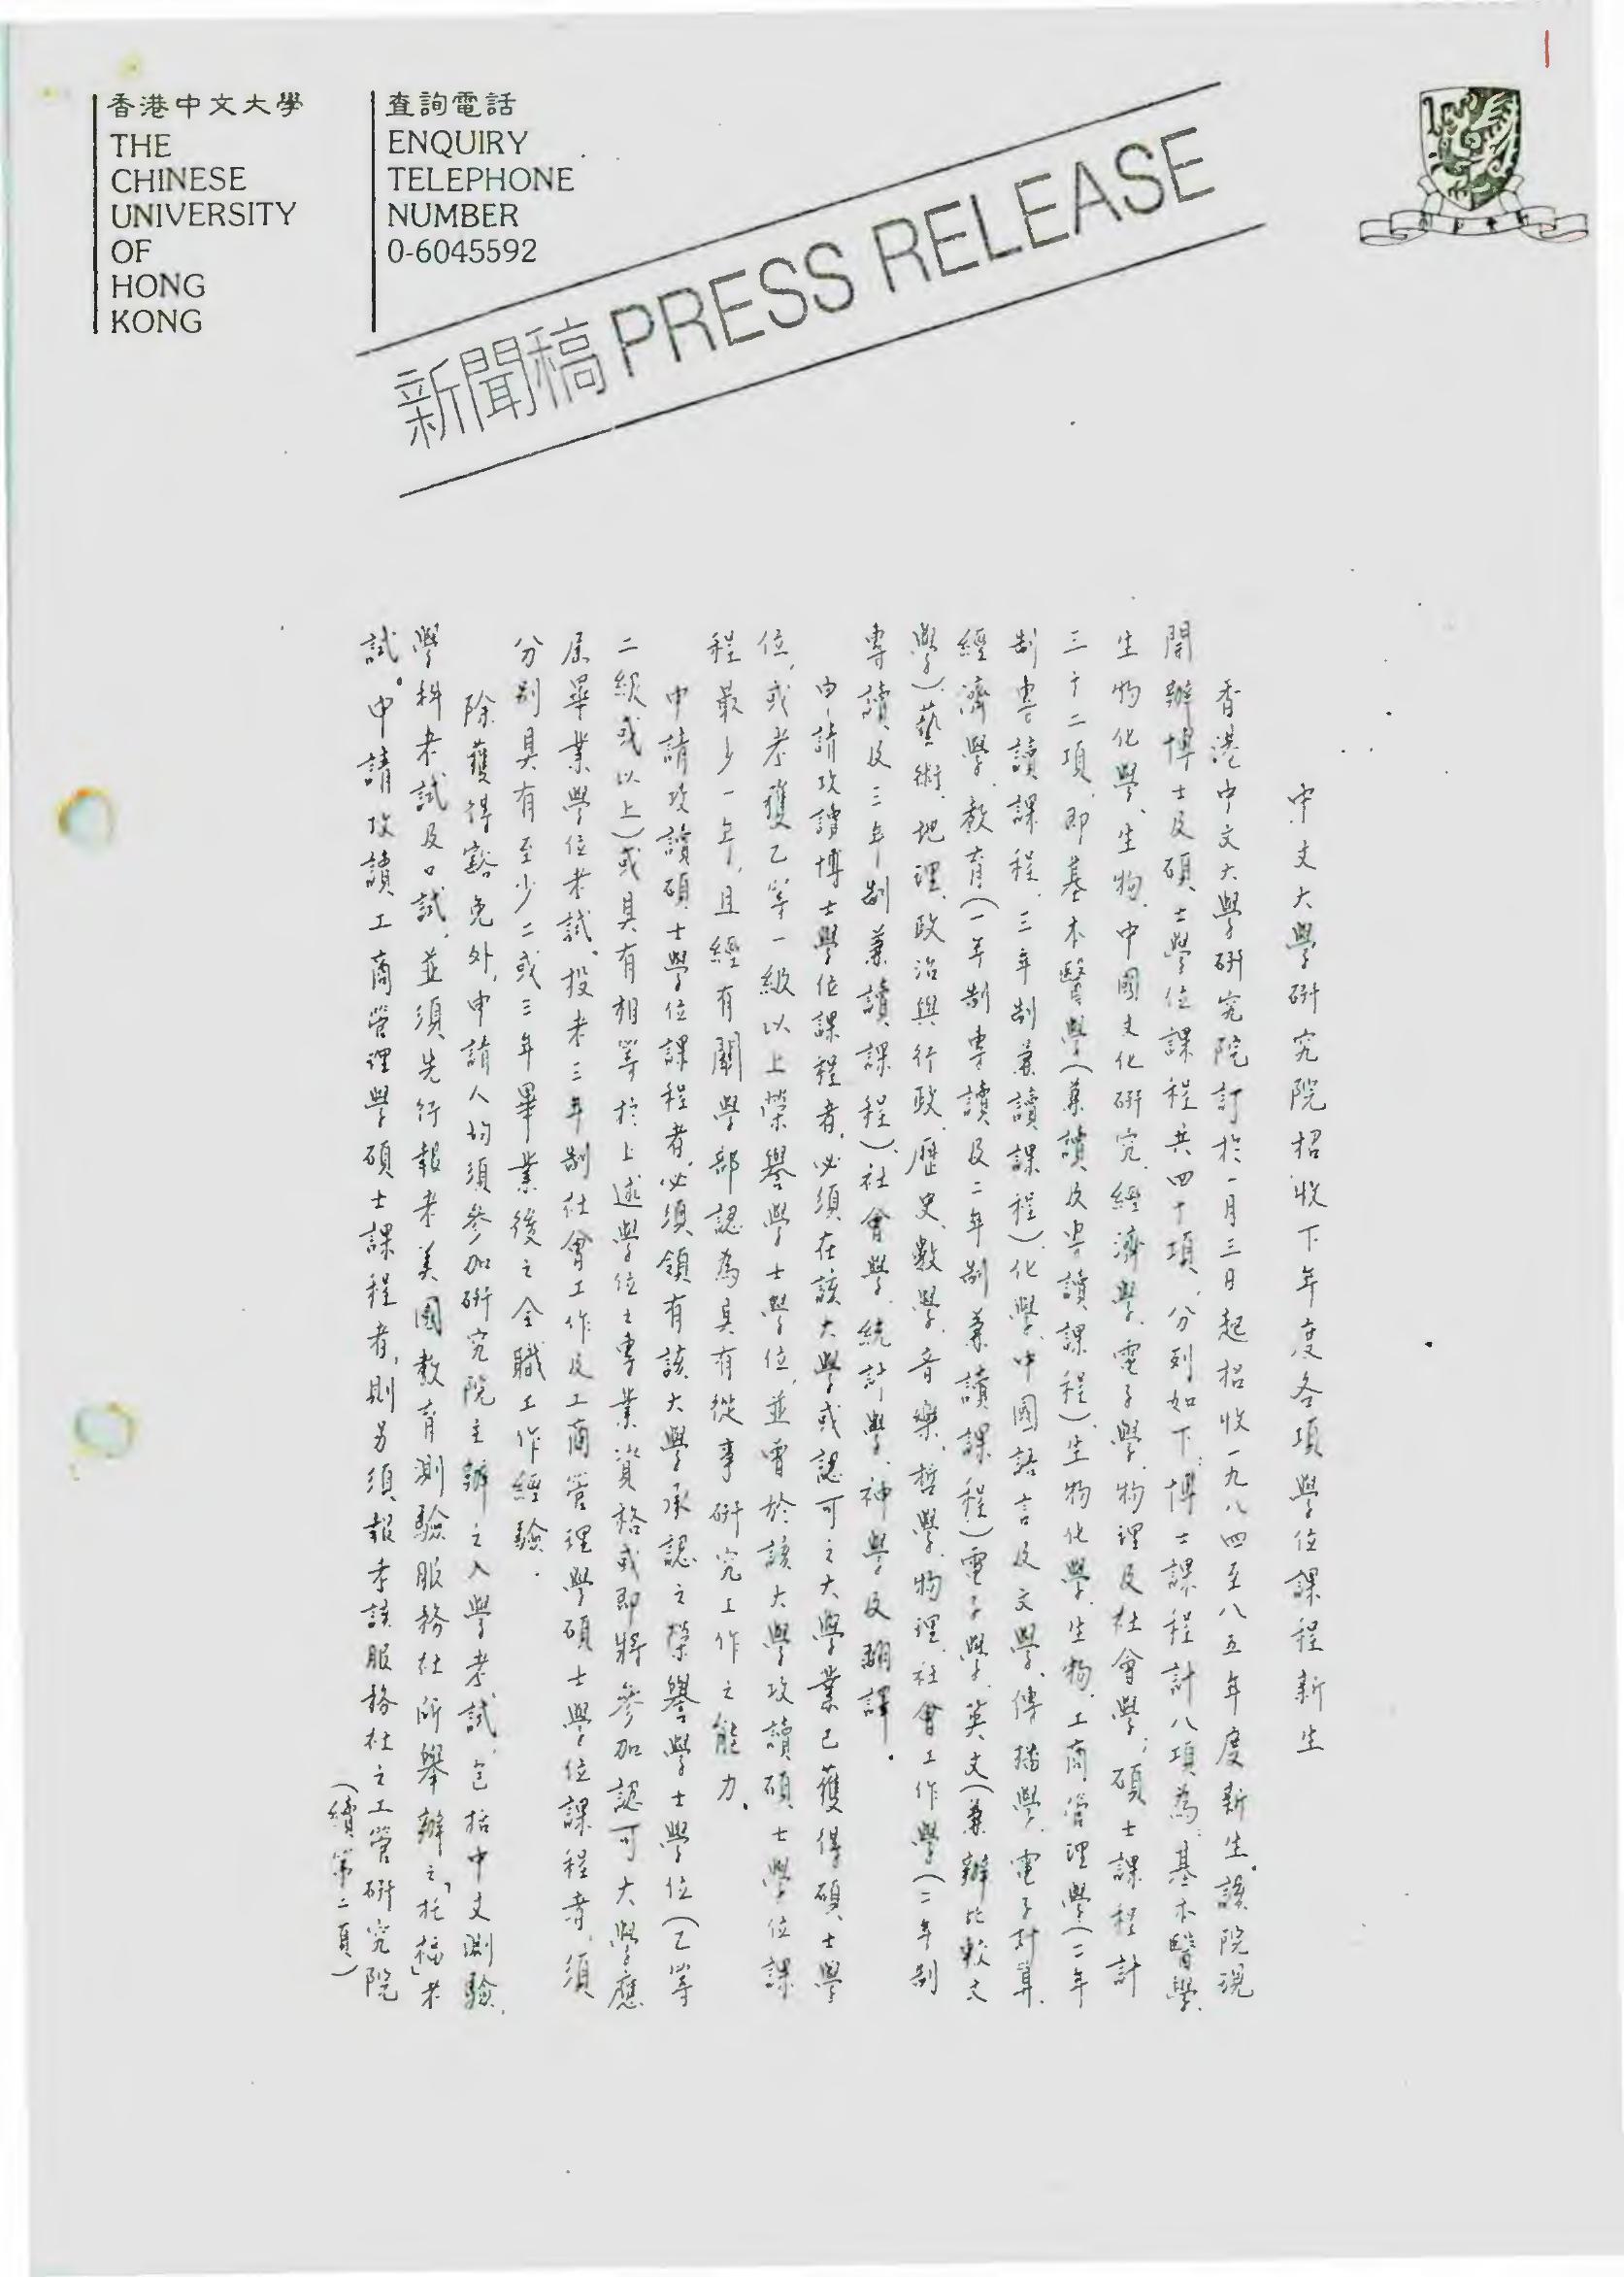 香港中文大學
THE
CHINESE
UNIVERSITY
OF
HONG
KONG
查詢電話
ENQUIRY
TELEPHONE
NUMBER
0-6045592
新聞稿 PRESS RELEASE
中文大學研究院招收下年度各項學位課程新生
香港中文大學研究院訂於一月三日起招收一九八四至八五年度新生。該院現
開辦博士及碩士學位課程共四十項,分列如下:博士課程計八項為:基本醫學、
生物化學、生物、中國文化研究、經濟學、電子學、物理及社會學;碩士課程計
三十二項,即基本醫學(兼讀及專讀課程)、生物化學、生物、工商管理學(二年
制專讀課程、三年制兼讀課程)、化學、中國語言及文學、傳播學、電子計算、
經濟學、教育(一年制專讀及二年制兼讀課程)電子學、英文(兼辦比較文
學)、藝術、地理、政治與行政、歷史、數學、音樂、哲學、物理、社會工作學(二年制
專讀及三年制兼讀課程)、社會學、統計學、神學及翻譯。
申請攻讀博士學位課程者,必須在該大學或認可之大學業已獲得碩士學
位,或考獲乙等一級以上榮譽學士學位,並曾於該大學攻讀碩士學位課
程最少一年,且經有關學部認為具有從事研究工作之能力。
申請攻讀碩士學位課程者,必須領有該大學承認之榮譽學士學位(乙等
二級或以上)或具有相等於上述學位之專業資格或即將參加認可大學應
屆畢業學位考試。投考三年制社會工作及工商管理學碩士學位課程者,須
分別具有至少二或三年畢業後之全職工作經驗。
除獲得豁免外,申請人均須參加研究院主辦之入學考試,包括中文測驗、
學科考試及口試,並須先行報考美國教育測驗服務社所舉辦之「托福」考
試。申請攻讀工商管理學碩士課程者,則另須報考該服務社之工管研究院
(續第二頁)